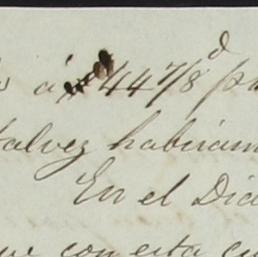 á 44 7/8 d
talvez habriam
En el Dia
que con esta